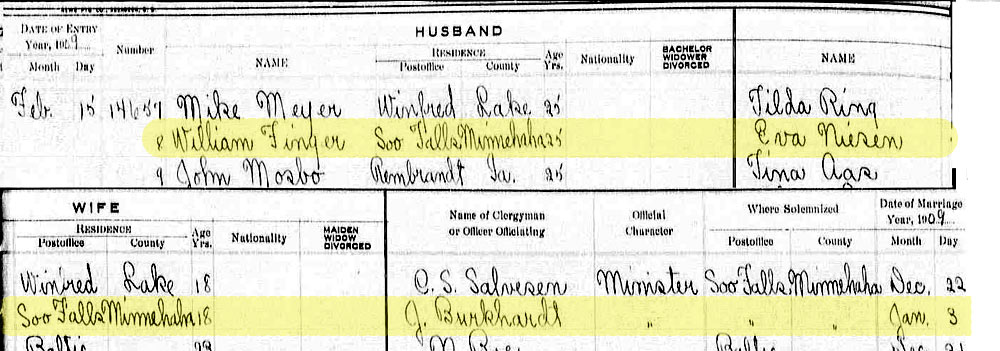 DATE OF ENTRY
Year, 1909
Month Day
Number
HUSBAND
NAME
RESIDENCE
Postoffice County
Age Yrs.
Nationality
BACHELOR WIDOWER DIVORCED
NAME
Feb. 15 14657 Mike Meyer Winfred Lake 25 Tilda Ring
8 William Finger Soo Falls Minnehaha 25 Eva Niesen
9 John Mosbo Rembrandt Ia. 25 Tina Aas
WIFE
RESIDENCE
Postoffice County
Age Yrs.
Nationality
MAIDEN WIDOW DIVORCED
Name of Clergyman or Officer Officiating
Official Character
Where Solemnized
Postoffice County
Date of Marriage
Year, 1909
Month Day
Winfred Lake 18 C. S. Salvesen Minister Soo Falls Minnehaha Dec. 22
Soo Falls Minnehaha 18 J. Burkhardt " " " Jan. 3
Baltic 23 Baltic